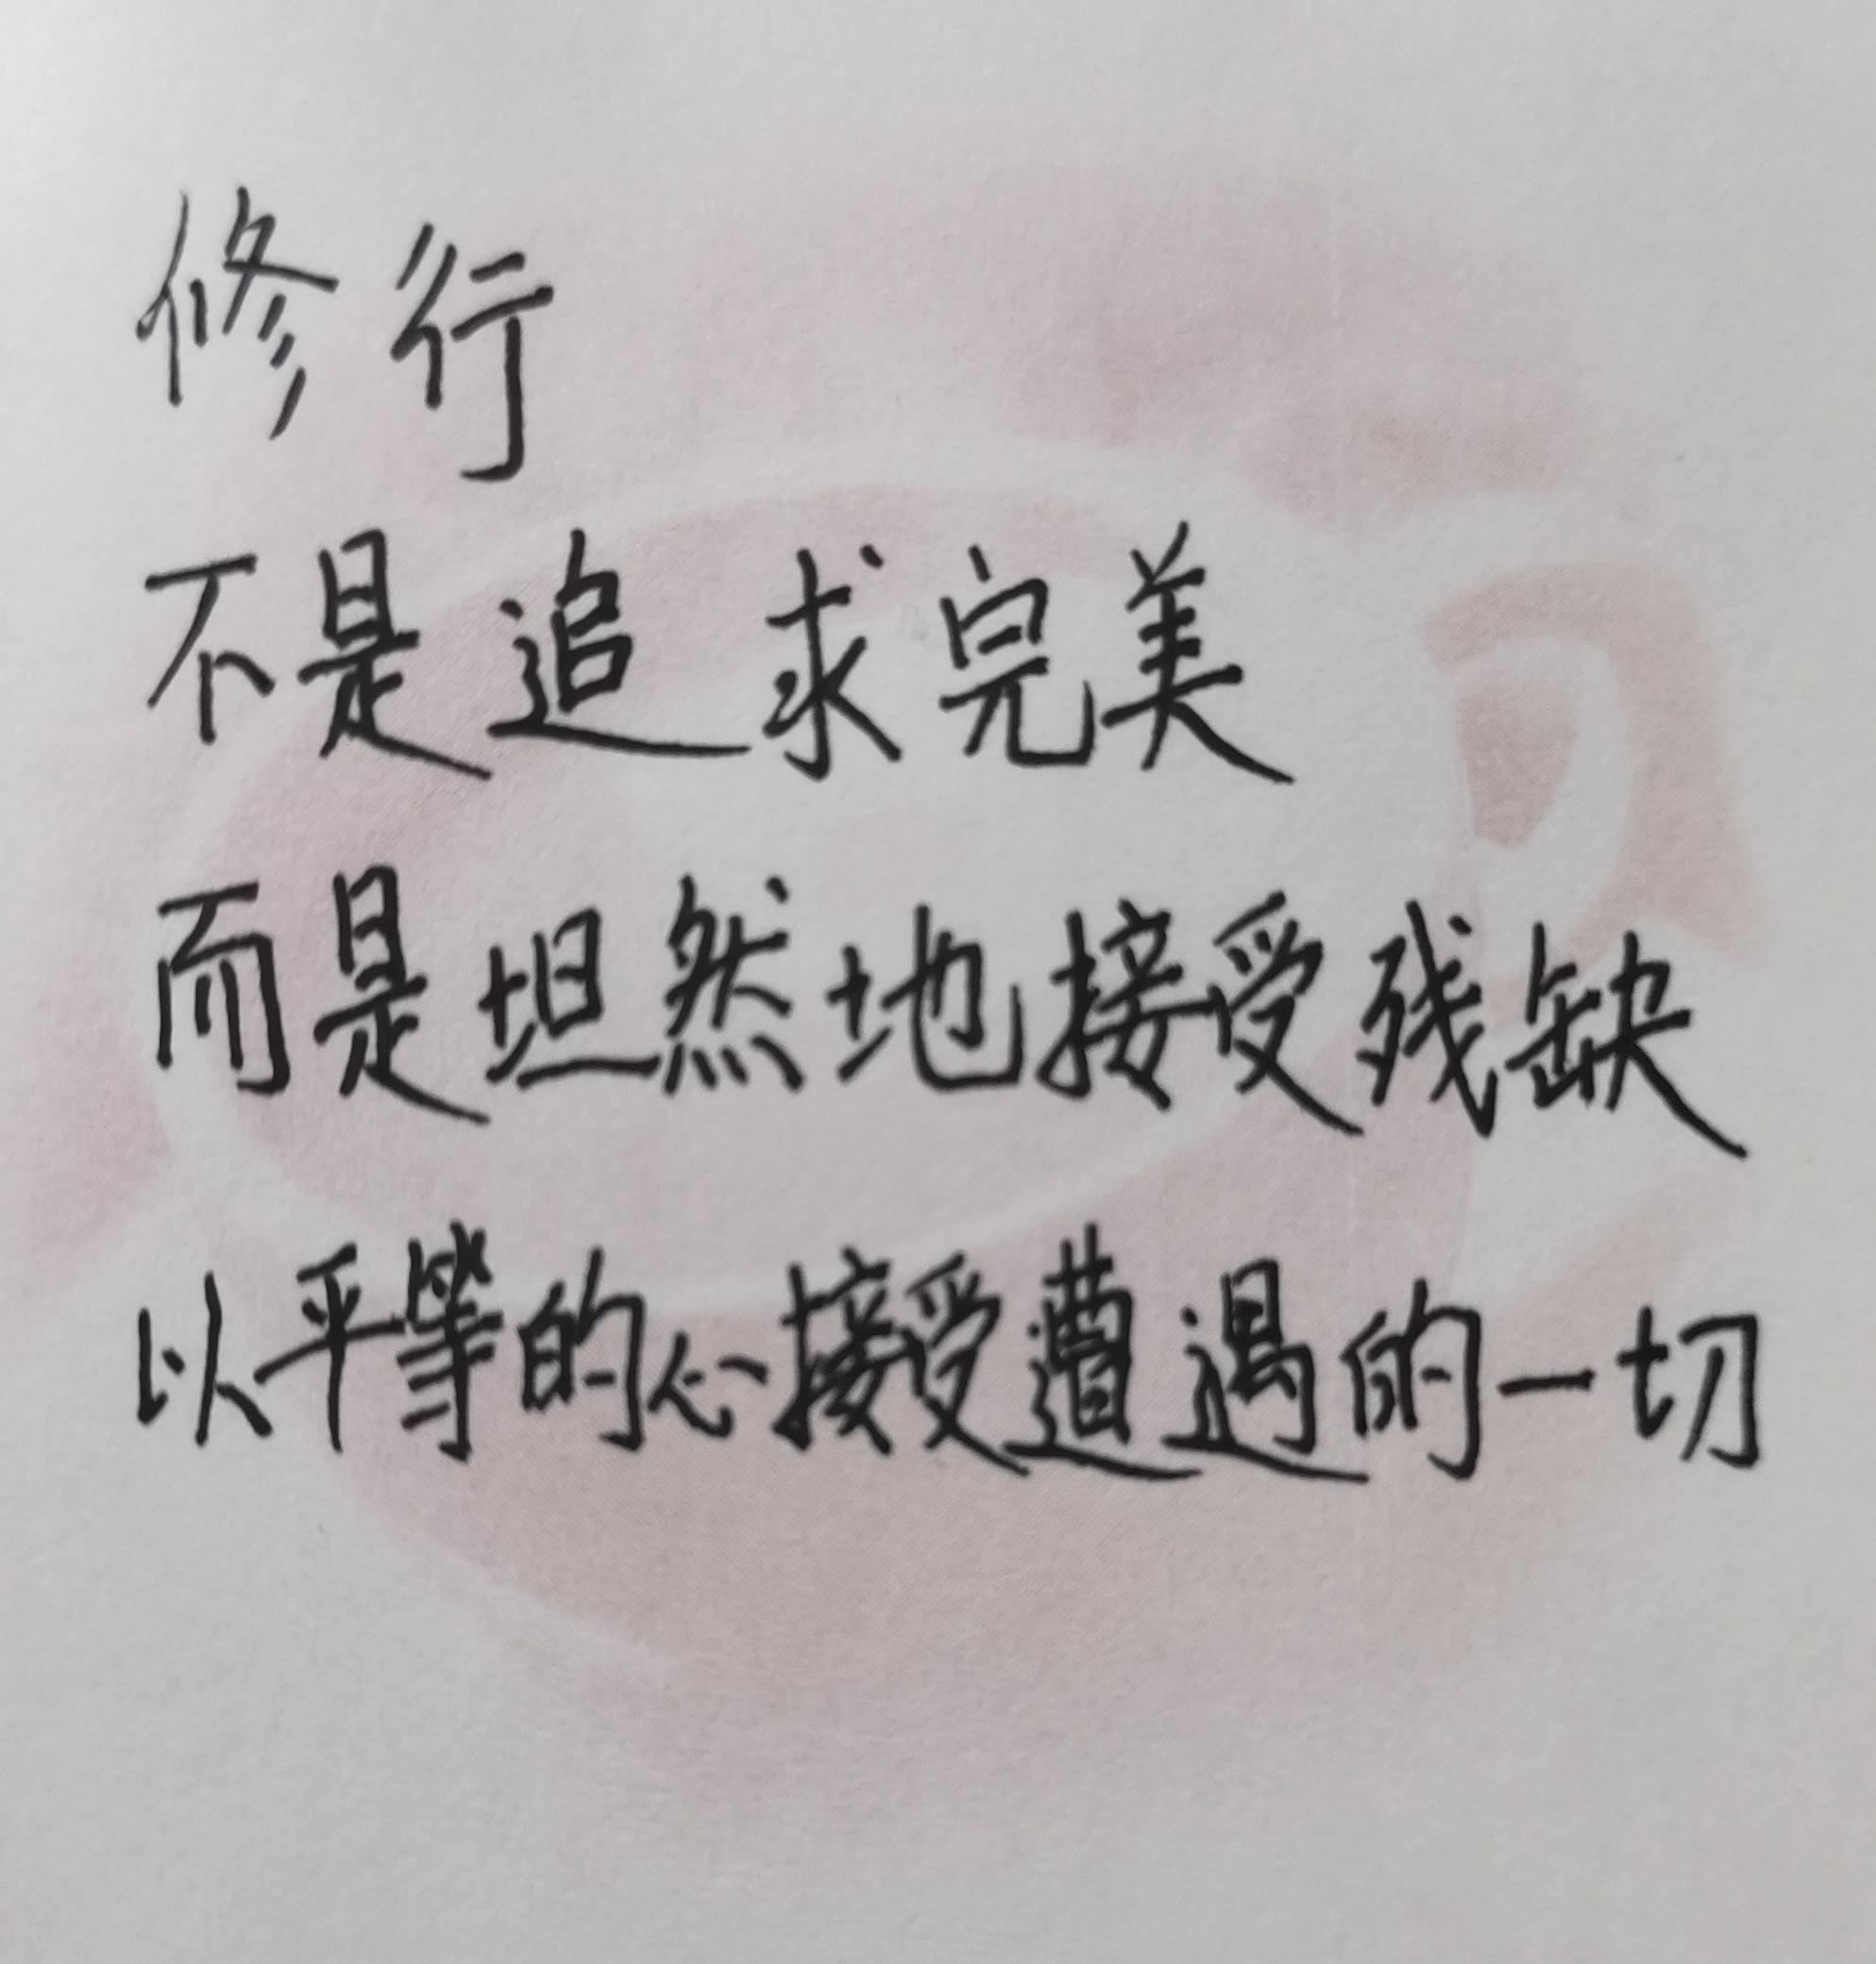 修行
不是追求完美
而是坦然地接受残缺
以平等的心接受遭遇的一切